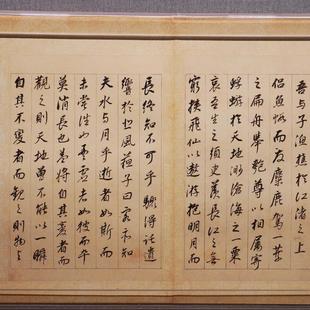 吾與子漁樵於江渚之上
侶魚鰕而友麋鹿駕一葉
之扁舟舉匏尊以相屬寄
蜉蝣於天地渺滄海之一粟
哀吾生之須臾羨長江之無
窮挾飛仙以遨遊抱明月而
長終知不可乎驟得託遺
響於悲風蘇子曰客亦知
夫水與月乎逝者如斯而
未嘗往也盈虛者如彼而卒
莫消長也蓋將自其變者而
觀之則天地曾不能以一瞬
自其不變者而觀之則物與